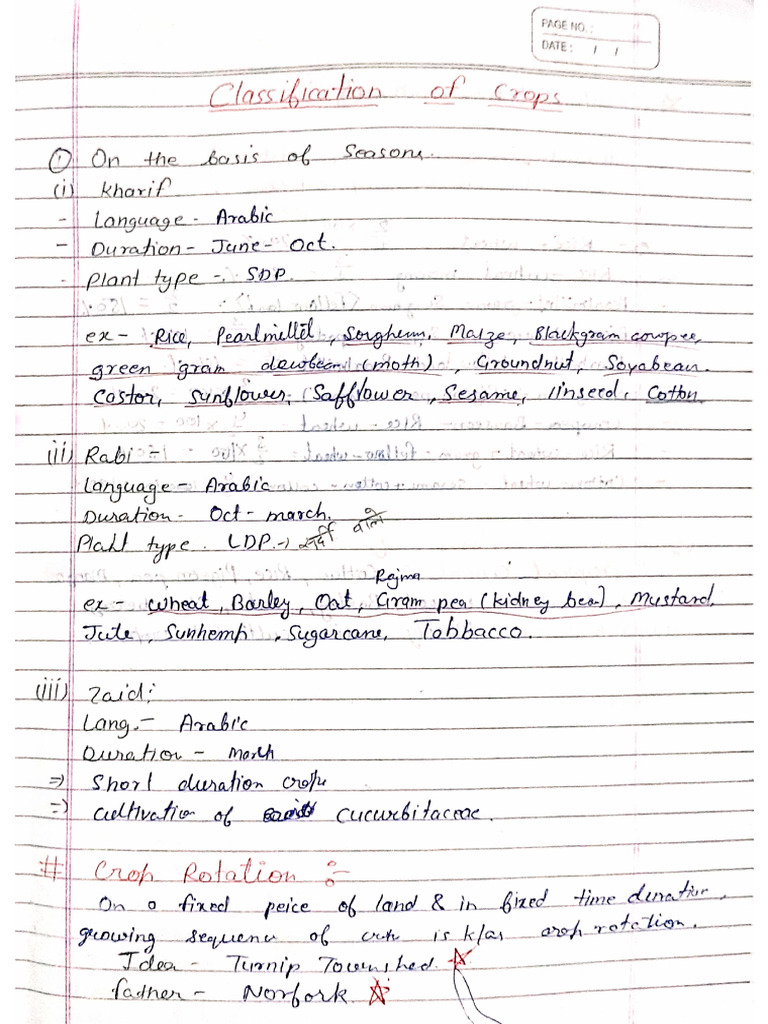 PAGE NO.:
DATE: / /
Classification of Crops
① On the basis of Seasons.
(i) Kharif
- Language - Arabic
- Duration - June - Oct.
- Plant type - SDP.
ex - Rice, Pearlmillet, Sorghem, Maize, Blackgram cowpee,
green gram dewbean (moth), Groundnut, Soyabean.
Castor, Sunflower, Safflower, Sesame, linseed, Cotton
(ii) Rabi :-
Language - Arabic
Duration - Oct - march.
Plant type. LDP. → सर्दी वाले
Rajma
ex - wheat, Barley, Oat, Gram pea (kidney bean), Mustard,
Jute, Sunhemp, Sugarcane, Tobbacco.
(iii) Zaid:
Lang. - Arabic
Duration - March
⇒ Short duration crop
⇒ Cultivation of Cucurbitaceae.
# Crop Rotation :-
On a fixed peice of land & in fixed time duration,
growing sequence of crop is k/as crop rotation.
Idea - Turnip Townshed. ☆
father - Norfork ☆